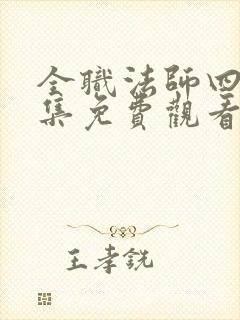 全職法師四
集免費觀看
王孝銑